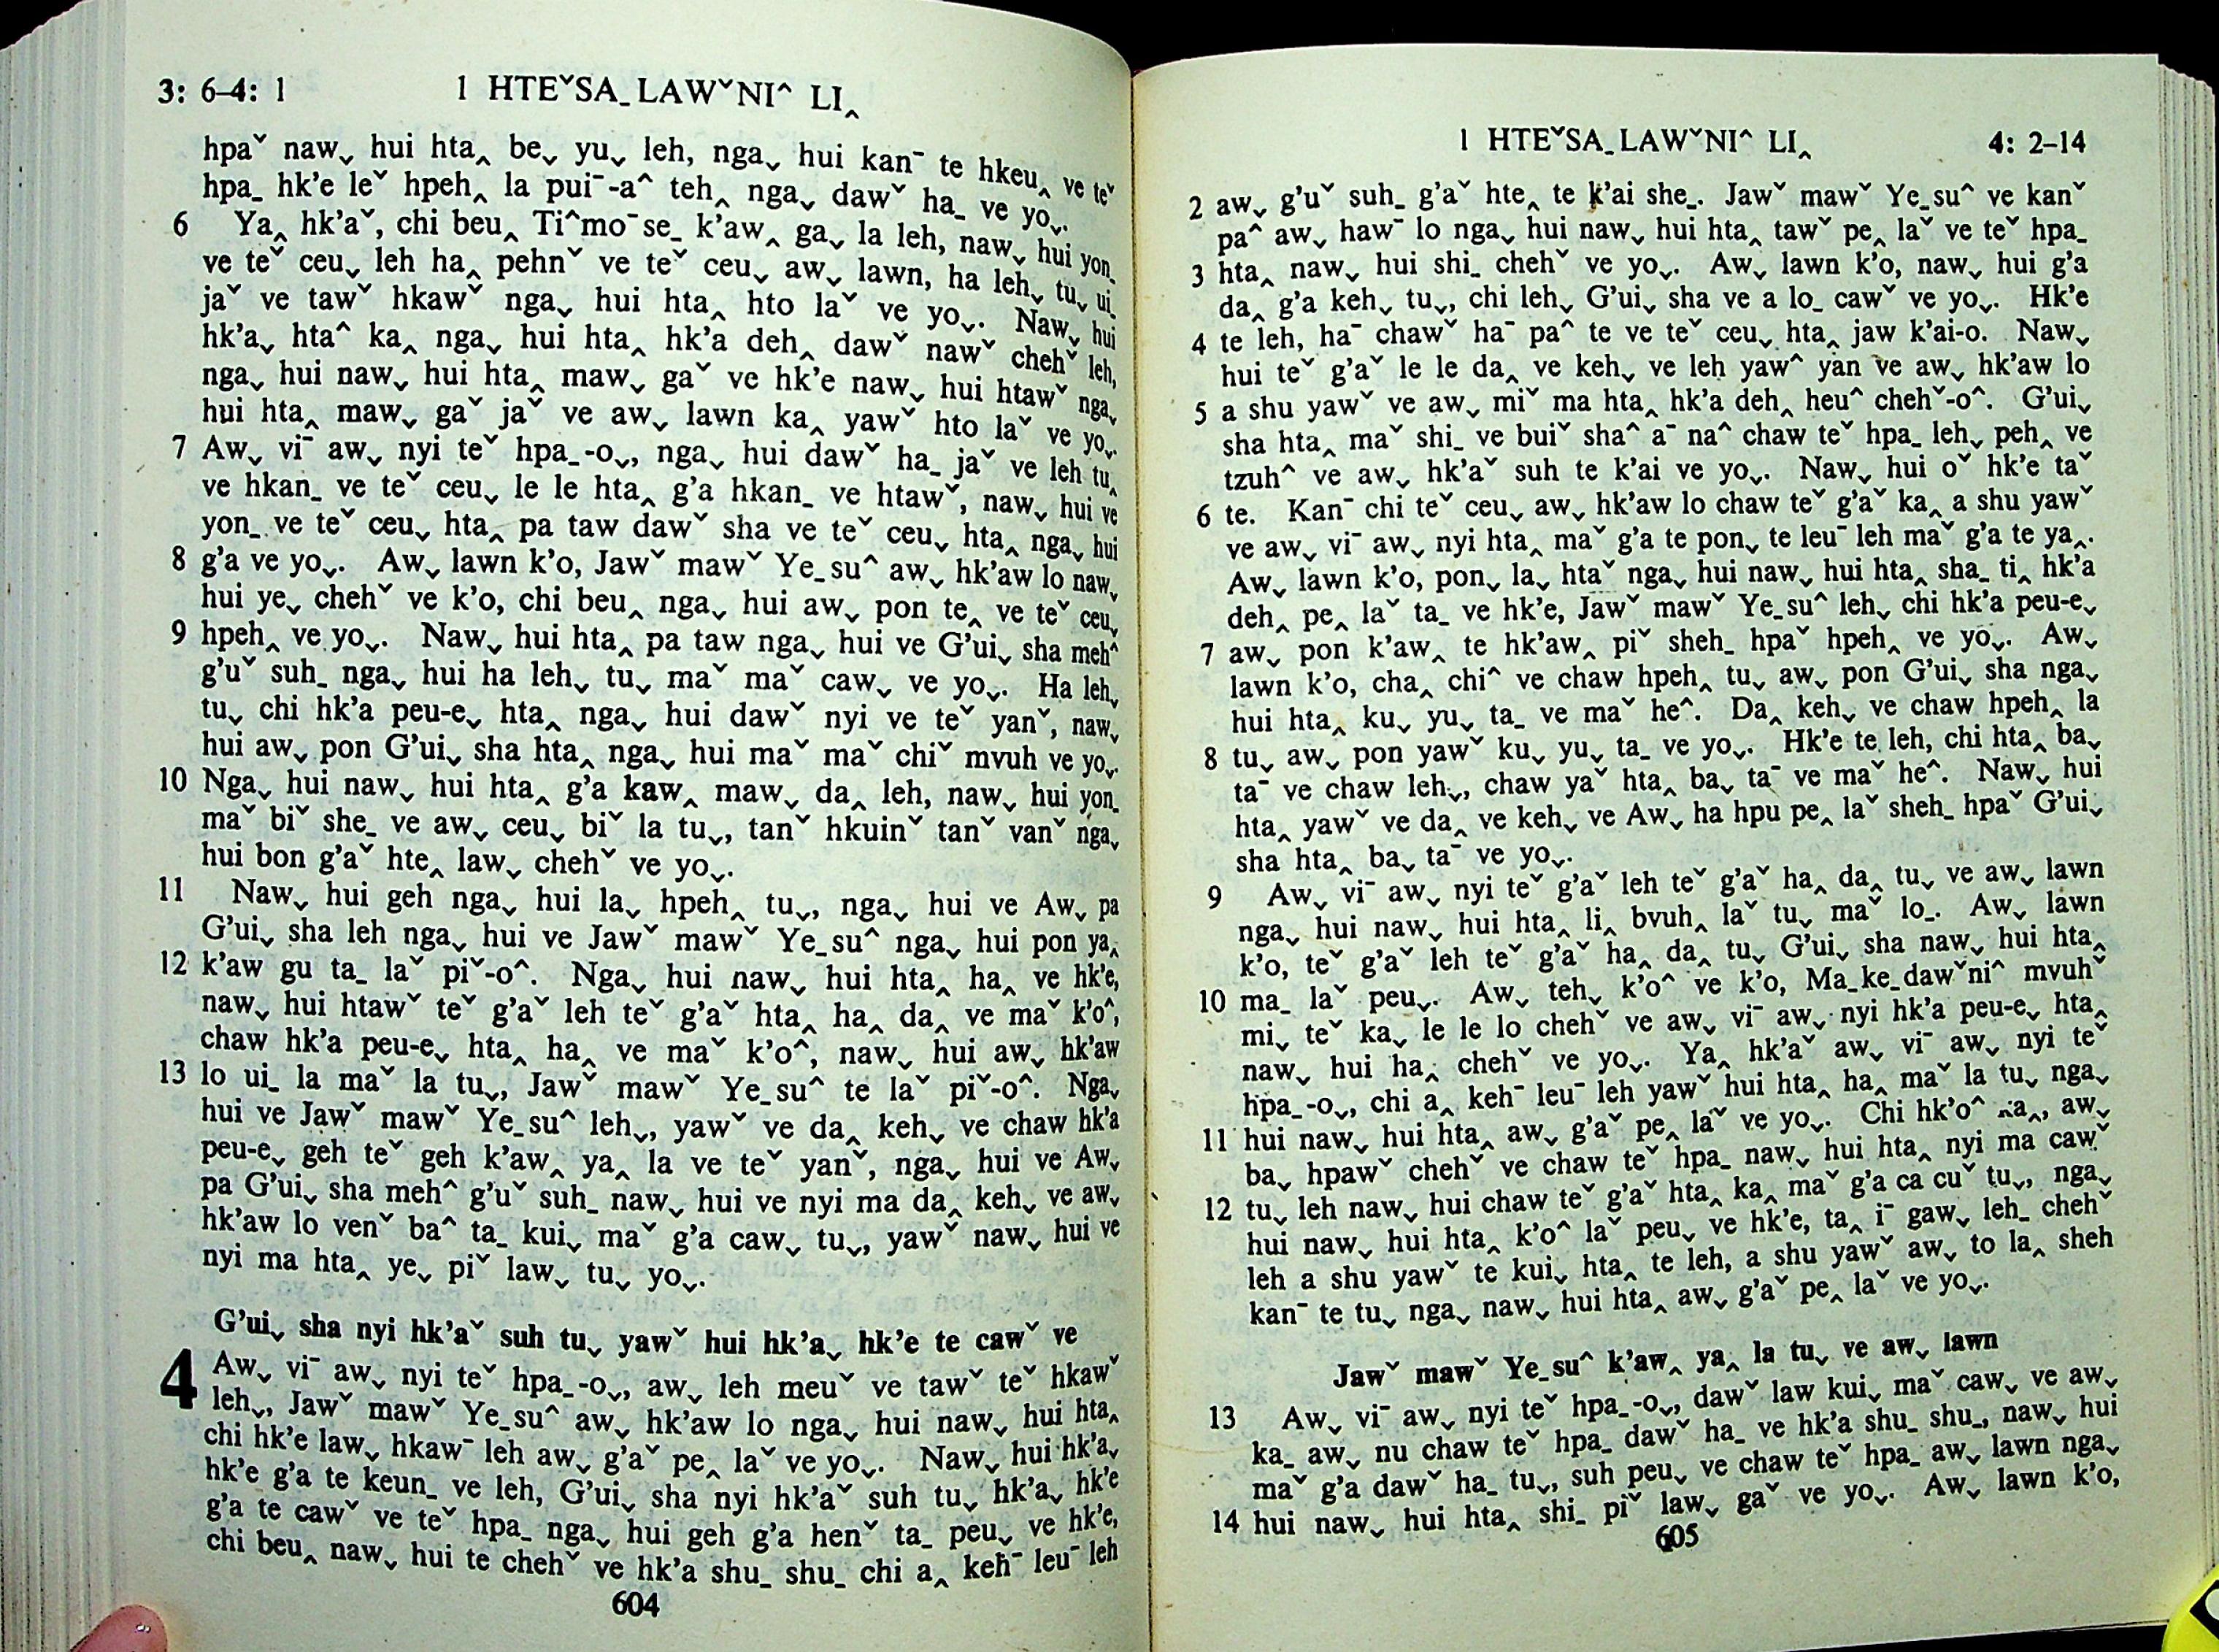 3: 6–4: 1 1 HTEˇSA_LAWˇNI^ LI‸
hpaˇ naw⌄ hui hta‸ be⌄ yu⌄ leh, nga⌄ hui kan¯ te hkeu‸ ve teˇ
hpa_ hk'e leˇ hpeh‸ la pui¯-a^ teh‸ nga⌄ dawˇ ha_ ve yo⌄.
6 Ya‸ hk'aˇ, chi beu‸ Ti^mo¯se_ k'aw‸ ga⌄ la leh, naw⌄ hui yon_
ve teˇ ceu⌄ leh ha‸ pehnˇ ve teˇ ceu⌄ aw⌄ lawn, ha leh⌄ tu⌄ ui_
jaˇ ve tawˇ hkawˇ nga⌄ hui hta‸ hto laˇ ve yo⌄. Naw⌄ hui
hk'a⌄ hta^ ka‸ nga⌄ hui hta‸ hk'a deh‸ dawˇ nawˇ chehˇ leh,
nga⌄ hui naw⌄ hui hta‸ maw⌄ gaˇ ve hk'e naw⌄ hui htawˇ nga⌄
hui hta‸ maw⌄ gaˇ jaˇ ve aw⌄ lawn ka‸ yawˇ hto laˇ ve yo⌄.
7 Aw⌄ vi¯ aw⌄ nyi teˇ hpa_-o⌄, nga⌄ hui dawˇ ha_ jaˇ ve leh tu‸
ve hkan_ ve teˇ ceu⌄ le le hta‸ g'a hkan_ ve htawˇ, naw⌄ hui ve
yon_ ve teˇ ceu⌄ hta‸ pa taw dawˇ sha ve teˇ ceu⌄ hta‸ nga⌄ hui
8 g'a ve yo⌄. Aw⌄ lawn k'o, Jawˇ mawˇ Ye_su^ aw⌄ hk'aw lo naw⌄
hui ye⌄ chehˇ ve k'o, chi beu‸ nga⌄ hui aw⌄ pon te‸ ve teˇ ceu⌄
9 hpeh‸ ve yo⌄. Naw⌄ hui hta‸ pa taw nga⌄ hui ve G'ui⌄ sha meh^
g'uˇ suh_ nga⌄ hui ha leh⌄ tu⌄ maˇ maˇ caw⌄ ve yo⌄. Ha leh⌄
tu⌄ chi hk'a peu-e⌄ hta‸ nga⌄ hui dawˇ nyi ve teˇ yanˇ, naw⌄
hui aw⌄ pon G'ui⌄ sha hta‸ nga⌄ hui maˇ maˇ chiˇ mvuh ve yo⌄.
10 Nga⌄ hui naw⌄ hui hta‸ g'a kaw‸ maw⌄ da‸ leh, naw⌄ hui yon_
maˇ biˇ she_ ve aw⌄ ceu⌄ biˇ la tu⌄, tanˇ hkuinˇ tanˇ vanˇ nga⌄
hui bon g'aˇ hte‸ law⌄ chehˇ ve yo⌄.
11 Naw⌄ hui geh nga⌄ hui la⌄ hpeh‸ tu⌄, nga⌄ hui ve Aw⌄ pa
G'ui⌄ sha leh nga⌄ hui ve Jawˇ mawˇ Ye_su^ nga⌄ hui pon ya‸
12 k'aw gu ta_ laˇ piˇ-o^. Nga⌄ hui naw⌄ hui hta‸ ha‸ ve hk'e,
naw⌄ hui htawˇ teˇ g'aˇ leh teˇ g'aˇ hta‸ ha‸ da‸ ve maˇ k'o^,
chaw hk'a peu-e⌄ hta‸ ha‸ ve maˇ k'o^, naw⌄ hui aw⌄ hk'aw
13 lo ui_ la maˇ la tu⌄, Jawˇ mawˇ Ye_su^ te laˇ piˇ-o^. Nga⌄
hui ve Jawˇ mawˇ Ye_su^ leh⌄, yawˇ ve da‸ keh⌄ ve chaw hk'a
peu-e⌄ geh teˇ geh k'aw‸ ya‸ la ve teˇ yanˇ, nga⌄ hui ve Aw⌄
pa G'ui⌄ sha meh^ g'uˇ suh_ naw⌄ hui ve nyi ma da‸ keh⌄ ve aw⌄
hk'aw lo venˇ ba^ ta_ kui⌄ maˇ g'a caw⌄ tu⌄, yawˇ naw⌄ hui ve
nyi ma hta‸ ye⌄ piˇ law⌄ tu⌄ yo⌄.
G'ui⌄ sha nyi hk'aˇ suh tu⌄ yawˇ hui hk'a⌄ hk'e te cawˇ ve
4 Aw⌄ vi¯ aw⌄ nyi teˇ hpa_-o⌄, aw⌄ leh meuˇ ve tawˇ teˇ hkawˇ
leh⌄, Jawˇ mawˇ Ye_su^ aw⌄ hk'aw lo nga⌄ hui naw⌄ hui hta‸
chi hk'e law⌄ hkaw¯ leh aw⌄ g'aˇ pe‸ laˇ ve yo⌄. Naw⌄ hui hk'a⌄
hk'e g'a te keun_ ve leh, G'ui⌄ sha nyi hk'aˇ suh tu⌄ hk'a⌄ hk'e
g'a te cawˇ ve teˇ hpa_ nga⌄ hui geh g'a henˇ ta_ peu⌄ ve hk'e,
chi beu‸ naw⌄ hui te chehˇ ve hk'a shu_ shu_ chi a‸ keh¯ leu¯ leh
604
1 HTEˇSA_LAWˇNI^ LI‸ 4: 2–14
2 aw⌄ g'uˇ suh_ g'aˇ hte‸ te k'ai she_. Jawˇ mawˇ Ye_su^ ve kanˇ
pa^ aw⌄ haw¯ lo nga⌄ hui naw⌄ hui hta‸ tawˇ pe‸ laˇ ve teˇ hpa_
3 hta‸ naw⌄ hui shi_ chehˇ ve yo⌄. Aw⌄ lawn k'o, naw⌄ hui g'a
da‸ g'a keh⌄ tu⌄, chi leh⌄ G'ui⌄ sha ve a lo_ cawˇ ve yo⌄. Hk'e
4 te leh, ha¯ chawˇ ha¯ pa^ te ve teˇ ceu⌄ hta‸ jaw k'ai-o. Naw⌄
hui teˇ g'aˇ le le da‸ ve keh⌄ ve leh yaw^ yan ve aw⌄ hk'aw lo
5 a shu yawˇ ve aw⌄ miˇ ma hta‸ hk'a deh‸ heu^ chehˇ-o^. G'ui⌄
sha hta‸ maˇ shi_ ve buiˇ sha^ a¯ na^ chaw teˇ hpa_ leh⌄ peh‸ ve
tzuh^ ve aw⌄ hk'aˇ suh te k'ai ve yo⌄. Naw⌄ hui oˇ hk'e taˇ
6 te. Kan¯ chi teˇ ceu⌄ aw⌄ hk'aw lo chaw teˇ g'aˇ ka‸ a shu yawˇ
ve aw⌄ vi¯ aw⌄ nyi hta‸ maˇ g'a te pon⌄ te leu¯ leh maˇ g'a te ya‸.
Aw⌄ lawn k'o, pon⌄ la⌄ htaˇ nga⌄ hui naw⌄ hui hta‸ sha_ ti‸ hk'a
deh‸ pe‸ laˇ ta_ ve hk'e, Jawˇ mawˇ Ye_su^ leh⌄ chi hk'a peu-e⌄
7 aw⌄ pon k'aw‸ te hk'aw‸ piˇ sheh_ hpaˇ hpeh‸ ve yo⌄. Aw⌄
lawn k'o, cha‸ chi^ ve chaw hpeh‸ tu⌄ aw⌄ pon G'ui⌄ sha nga⌄
hui hta‸ ku⌄ yu⌄ ta_ ve maˇ he^. Da‸ keh⌄ ve chaw hpeh‸ la
8 tu⌄ aw⌄ pon yawˇ ku⌄ yu⌄ ta_ ve yo⌄. Hk'e te leh, chi hta‸ ba⌄
ta¯ ve chaw leh⌄, chaw yaˇ hta‸ ba⌄ ta¯ ve maˇ he^. Naw⌄ hui
hta‸ yawˇ ve da‸ ve keh⌄ ve Aw⌄ ha hpu pe‸ laˇ sheh_ hpaˇ G'ui⌄
sha hta‸ ba⌄ ta¯ ve yo⌄.
9 Aw⌄ vi¯ aw⌄ nyi teˇ g'aˇ leh teˇ g'aˇ ha‸ da‸ tu⌄ ve aw⌄ lawn
nga⌄ hui naw⌄ hui hta‸ li‸ bvuh‸ laˇ tu⌄ maˇ lo_. Aw⌄ lawn
k'o, teˇ g'aˇ leh teˇ g'aˇ ha‸ da‸ tu⌄ G'ui⌄ sha naw⌄ hui hta‸
10 ma_ laˇ peu⌄. Aw⌄ teh⌄ k'o^ ve k'o, Ma_ke_dawˇni^ mvuhˇ
mi⌄ teˇ ka⌄ le le lo chehˇ ve aw⌄ vi¯ aw⌄ nyi hk'a peu-e⌄ hta‸
naw⌄ hui ha‸ chehˇ ve yo⌄. Ya‸ hk'aˇ aw⌄ vi¯ aw⌄ nyi teˇ
hpa_-o⌄, chi a‸ keh¯ leu¯ leh yawˇ hui hta‸ ha‸ maˇ la tu⌄ nga⌄
11 hui naw⌄ hui hta‸ aw⌄ g'aˇ pe‸ laˇ ve yo⌄. Chi hk'o^ ka‸, aw⌄
ba⌄ hpawˇ chehˇ ve chaw teˇ hpa_ naw⌄ hui hta‸ nyi ma cawˇ
12 tu⌄ leh naw⌄ hui chaw teˇ g'aˇ hta‸ ka‸ maˇ g'a ca cuˇ tu⌄, nga⌄
hui naw⌄ hui hta‸ k'o^ laˇ peu⌄ ve hk'e, ta‸ i¯ gaw⌄ leh_ chehˇ
leh a shu yawˇ te kui⌄ hta‸ te leh, a shu yawˇ aw⌄ to la‸ sheh
kan¯ te tu⌄ nga⌄ naw⌄ hui hta‸ aw⌄ g'aˇ pe‸ laˇ ve yo⌄.
Jawˇ mawˇ Ye_su^ k'aw‸ ya‸ la tu⌄ ve aw⌄ lawn
13 Aw⌄ vi¯ aw⌄ nyi teˇ hpa_-o⌄, dawˇ law kui⌄ maˇ caw⌄ ve aw⌄
ka_ aw⌄ nu chaw teˇ hpa_ dawˇ ha_ ve hk'a shu_ shu_, naw⌄ hui
maˇ g'a dawˇ ha_ tu⌄, suh peu⌄ ve chaw teˇ hpa_ aw⌄ lawn nga⌄
14 hui naw⌄ hui hta‸ shi_ piˇ law⌄ gaˇ ve yo⌄. Aw⌄ lawn k'o,
605